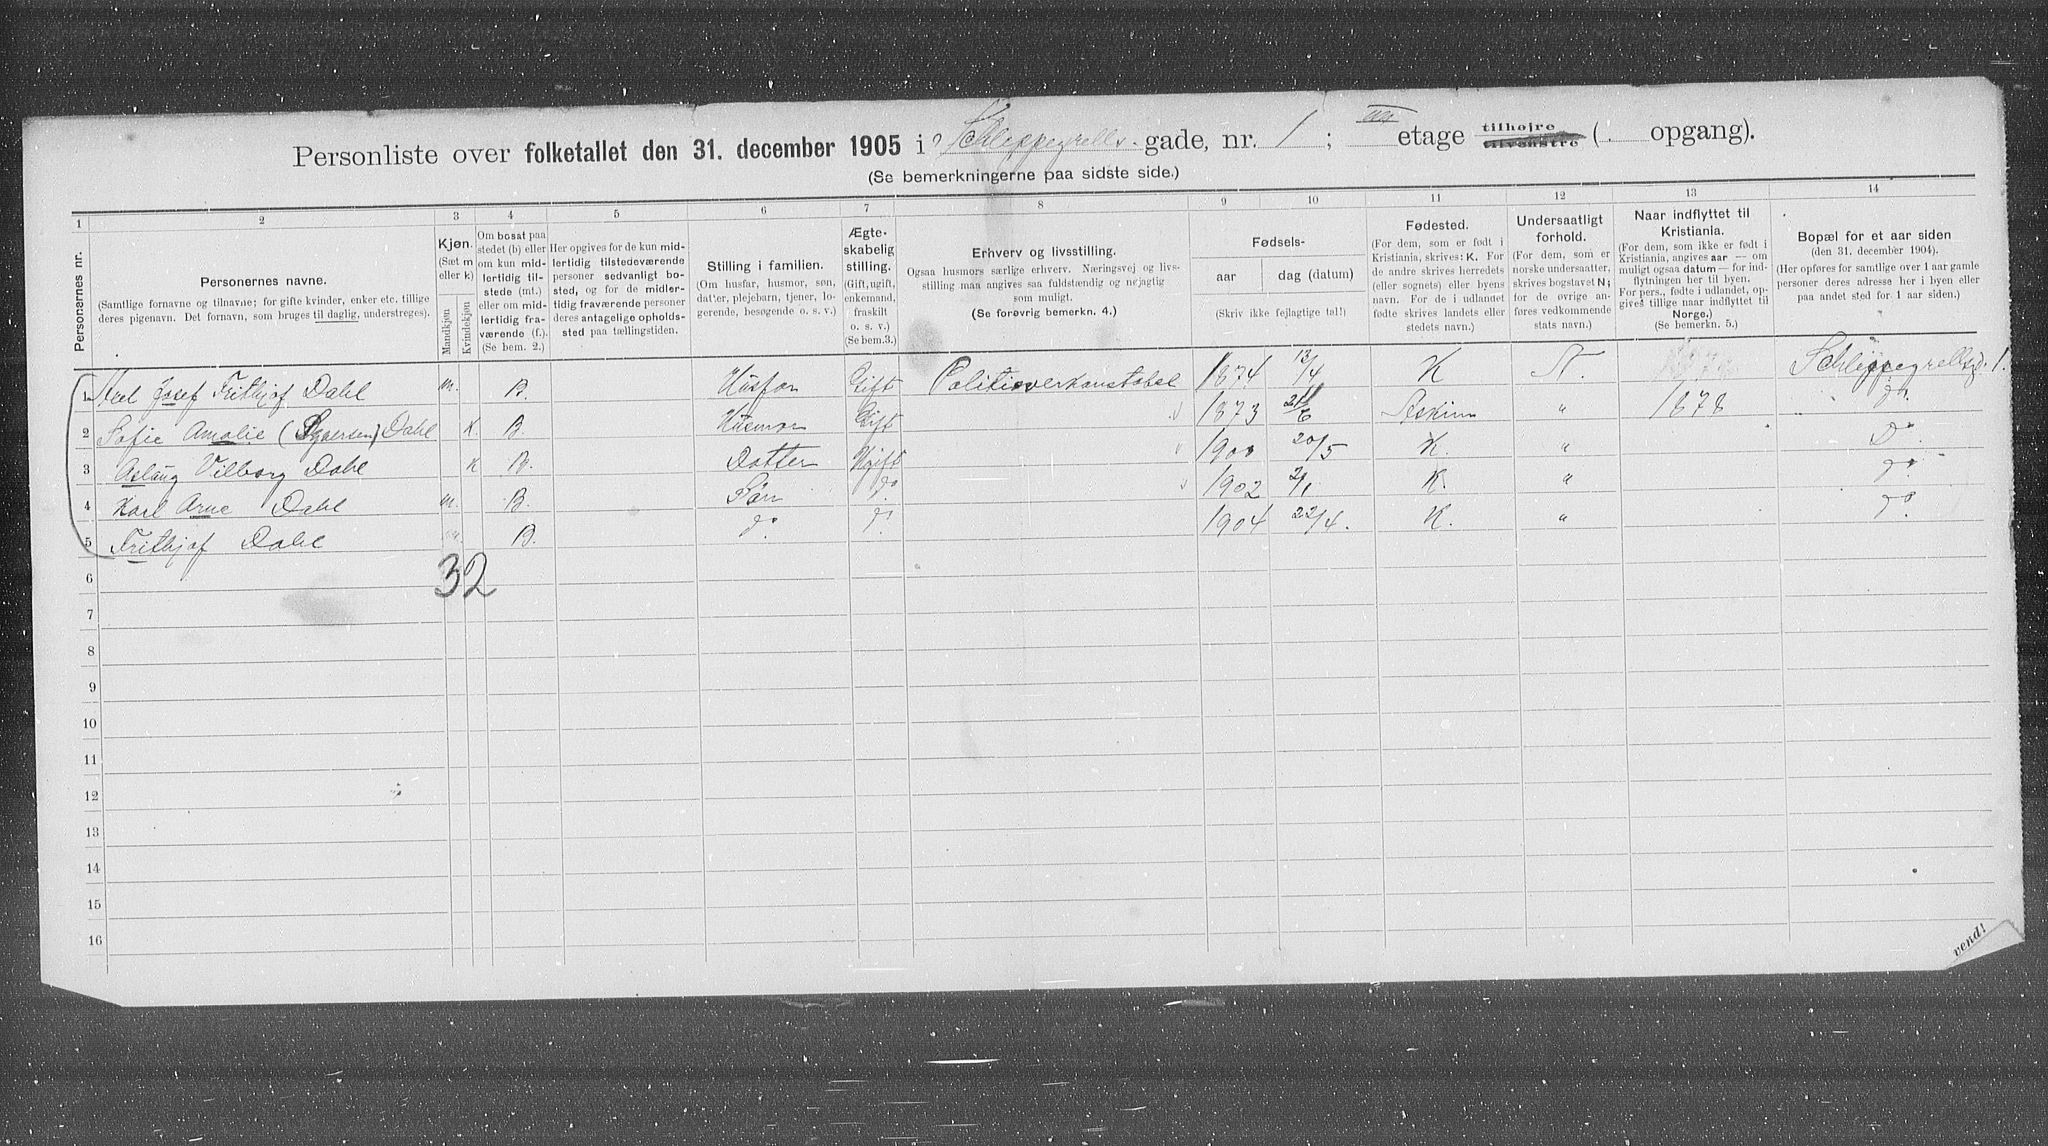 Personliste over folketallet den 31. december 1905 i Schleppegrells gade, nr. 1; etage tilhøjre tilvenstre ( . opgang).
(Se bemerkningerne paa sidste side.)
1 2 3 4 5 6 7 8 9 10 11 12 13 14
Personernes nr.
Personernes navne.
(Samtlige fornavne og tilnavne; for gifte kvinder, enker etc. tillige deres pigenavn. Det fornavn, som bruges til daglig, understreges).
Kjøn.
(Sæt m eller k)
Mandkjøn
Kvindekjøn
Om bosat paa stedet (b) eller om kun midlertidig tilstede (mt.) eller om midlertidig fraværende (f.). (Se bem. 2.)
Her opgives for de kun midlertidig tilstedeværende personer sedvanligt bosted, og for de midlertidig fraværende personer deres antagelige opholdssted paa tællingstiden.
Stilling i familien.
(Om husfar, husmor, søn, datter, plejebarn, tjener, logerende, besøgende o. s. v.)
Ægteskabelig stilling.
(Gift, ugift, enkemand, fraskilt o. s. v.)
(Se bem. 3.)
Erhverv og livsstilling.
Ogsaa husmors særlige erhverv. Næringsvej og livsstilling maa angives saa fuldstændig og nøjagtig som muligt.
(Se forøvrig bemerkn. 4.)
Fødsels-
aar
dag (datum)
(Skriv ikke fejlagtige tal!)
Fødested.
(For dem, som er født i Kristiania, skrives: K. For de andre skrives herredets (eller sognets) eller byens navn. For de i udlandet fødte skrives landets eller stedets navn.)
Undersaatligt forhold.
(For dem, som er norske undersaatter, skrives bogstavet N; for de øvrige anføres vedkommende stats navn.)
Naar indflyttet til Kristiania.
(For dem, som ikke er født i Kristiania, angives aar — om muligt ogsaa datum — for indflytningen her til byen. For pers., fødte i udlandet, opgives tillige naar indflyttet til Norge.)
(Se bemerkn. 5.)
Bopæl for et aar siden
(den 31. december 1904).
(Her opføres for samtlige over 1 aar gamle personer deres adresse her i byen eller paa andet sted for 1 aar siden.)
1 Axel Josef Frithjof Dahl m. B. Husfar Gift Politioverkonstabel 1874 13/4 K N. Schleppegrellsg. 1.
2 Sofie Amalie Dahl K. B. Husmor Gift 1873 Askim " 1878 do.
3 Aslaug Vilborg Dahl K B. Datter Ugift 1900 20/5 K. " Do.
4 Karl Arne Dahl m. B. Sön do. 1902 2/1 K. " do.
5 Frithjof Dahl m. B. do. do. 1904 22/4. K. " do.
32
6
7
8
9
10
11
12
13
14
15
16
vend!